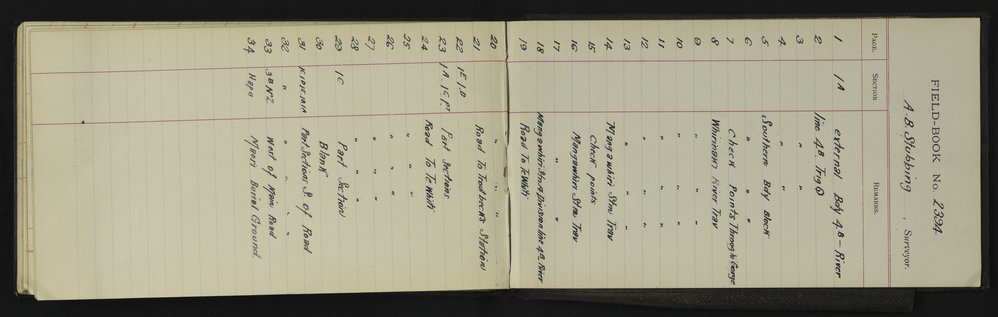 FIELD-BOOK No. 2394
A.B. Stubbing, Surveyor.
PAGE. SECTION REMARKS.
1 1A external Bdy 4B – River
2 line 4B. Trig O
3 " "
4 " "
5 Southern Bdy Block
6 " "
7 Check Points Through Gorge
8 Whirinaki River Trav
9 " "
10 " "
11 " "
12 " "
13 " "
14 Mangawhiri Stm Trav
15 Check points
16 Mangawhiri Stm Trav
17 " "
18 Mangawhiri Stm & Division line 4B. River
19 Road To Te Whiti
20 " "
21 Road To Troutbecks Station
22 1E 1D
23 1A. 1C Pt Part Sections
24 Road To Te Whiti
25 " "
26 " "
27 " "
28 " "
29 1C Part Section
30 Blank
31 Part Section S. of Road
32 " " "
33 3B No2 West of Main Road
34 Hapu Maori Burial Ground.